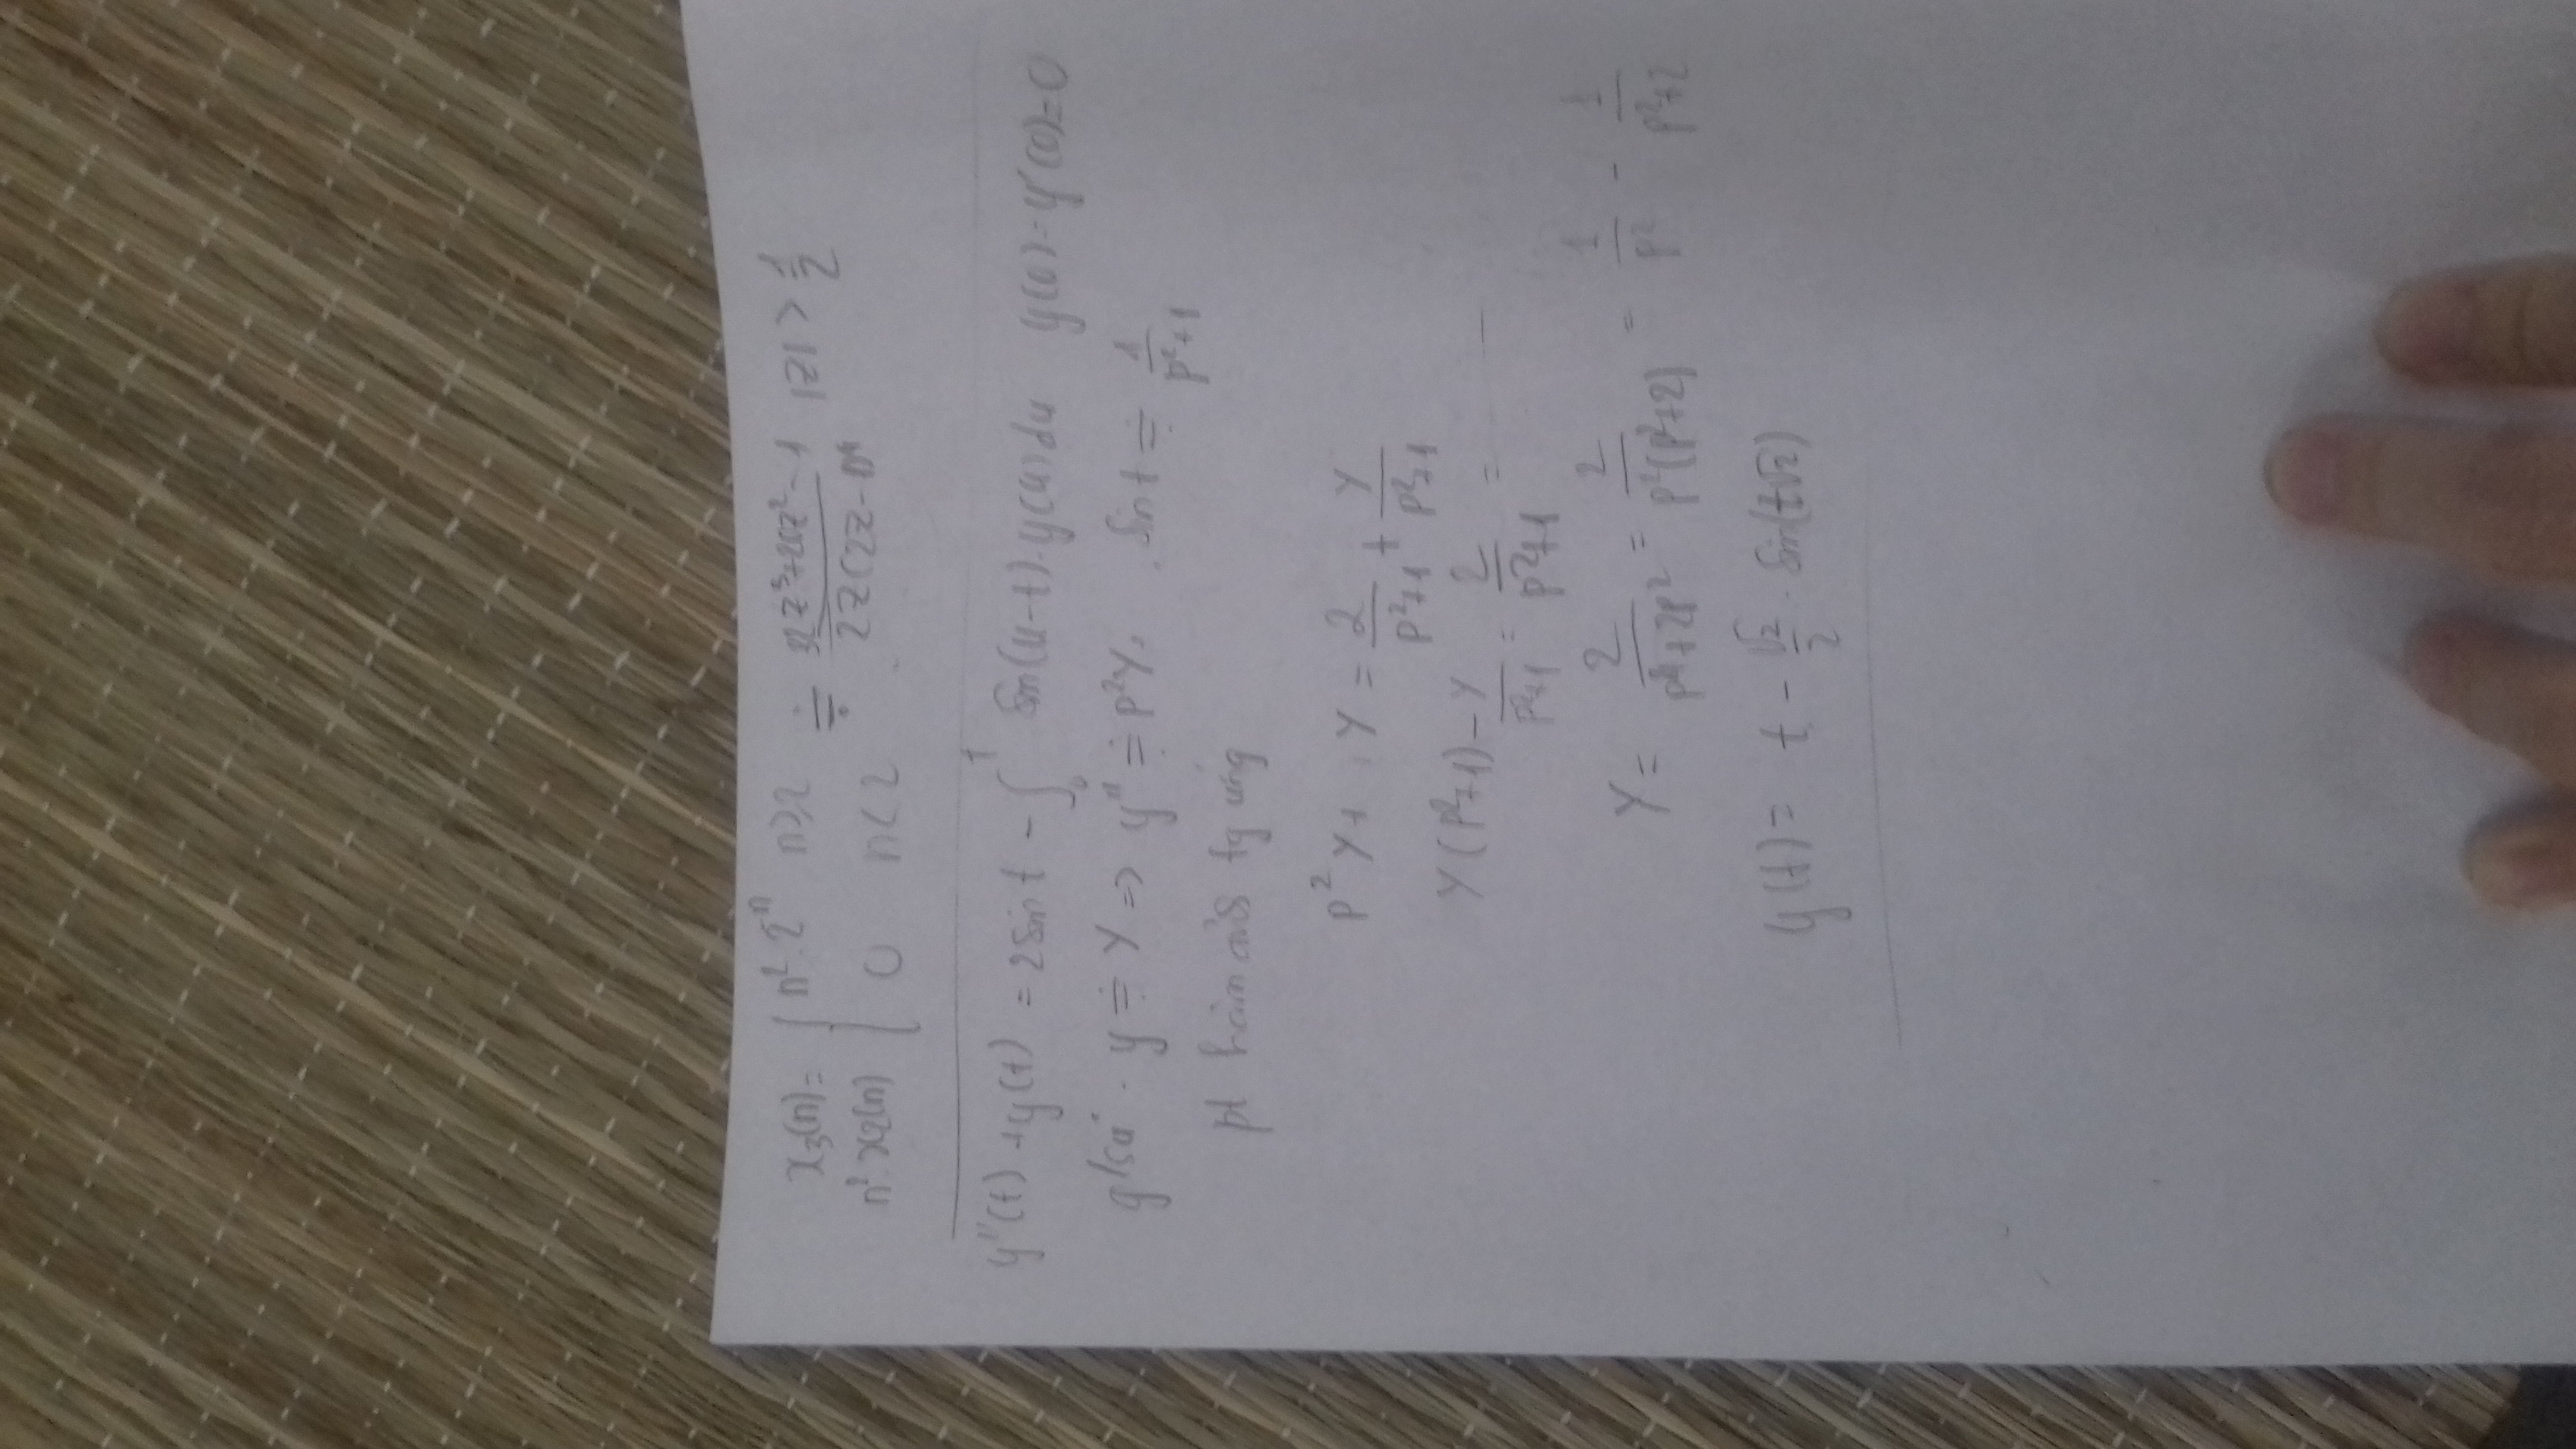 x₃(n) = { n² · 2ⁿ n ≥ 2 ≑ |z| > 1/2
n² · x₂(n) { 0 n < 2
y''(t) + y(t) = 2 sin t - ∫ sin(u-t) · y(u) du y(0) = y'(0) = 0
g/sử · y ≑ Y => y'' ≑ p²Y, sin t ≑ 1/(p²+1)
pt hàm ảnh tg ứng
p²Y + Y = 2/(p²+1) + Y/(p²+1)
Y(p²+1) - Y/(p²+1) = 2/(p²+1) =
Y = 2/(p⁴+2p²) = 2/(p²(p²+2)) = 1/p² - 1/(p²+2)
y(t) = t - √2/2 · sin(t√2)